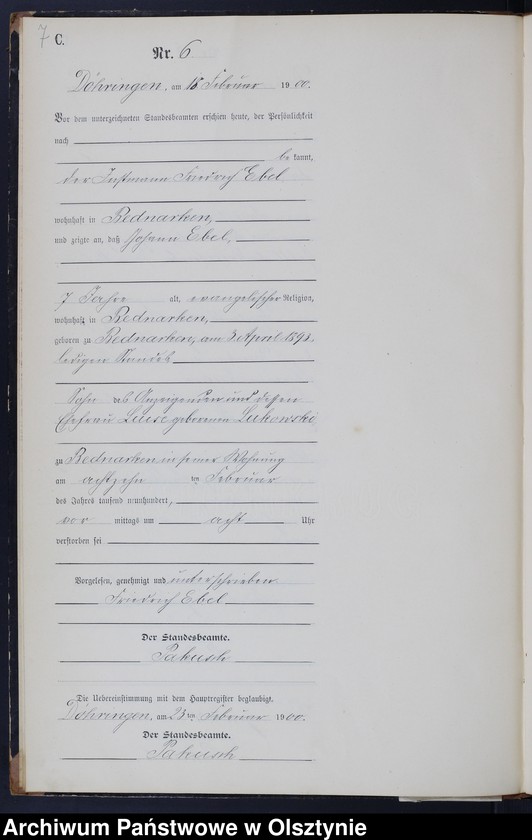 7 C.
Nr. 6
Döhringen, am 18 Februar 1900.
Vor dem unterzeichneten Standesbeamten erschien heute, der Persönlichkeit
nach
be kannt,
der Instmann Friedrich Ebel
wohnhaft in Bednarken,
und zeigte an, daß Johann Ebel,
7 Jahre alt, evangelischer Religion,
wohnhaft in Bednarken,
geboren zu Bednarken, am 3 April 1892.
ledigen Standes
Sohn des Anzeigenden und dessen
Ehefrau Luise geborenen Lukowski
zu Bednarken in seiner Wohnung
am achtzehn ten Februar
des Jahres tausend neunhundert,
vor mittags um acht Uhr
verstorben sei
Vorgelesen, genehmigt und unterschrieben
Friedrich Ebel
Der Standesbeamte.
Pakusch
Die Uebereinstimmung mit dem Hauptregister beglaubigt.
Döhringen, am 23 ten Februar 1900.
Der Standesbeamte.
Pakusch
Archiwum Państwowe w Olsztynie